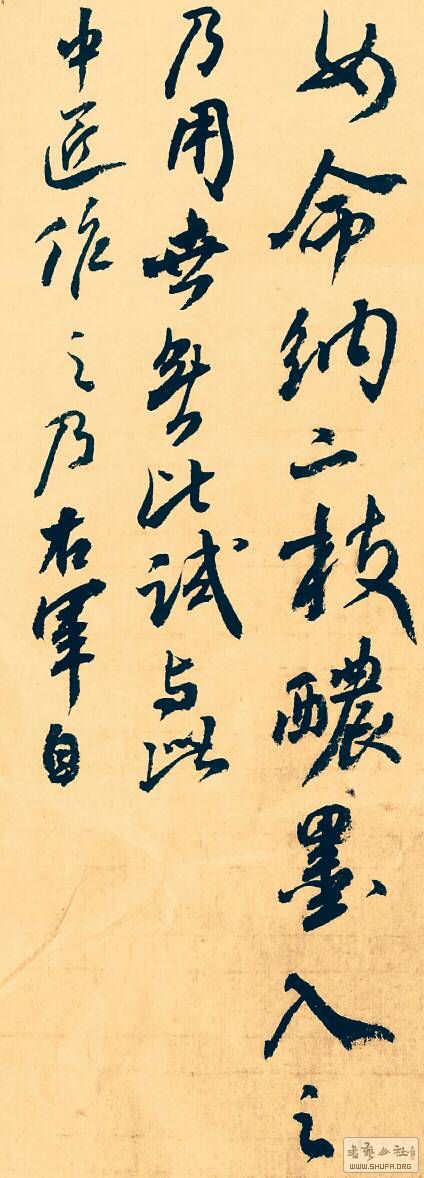 如命納二枝醲墨入之
乃用世無此試与此
中匠作之乃右軍自
书艺公社
WWW.SHUFA.ORG